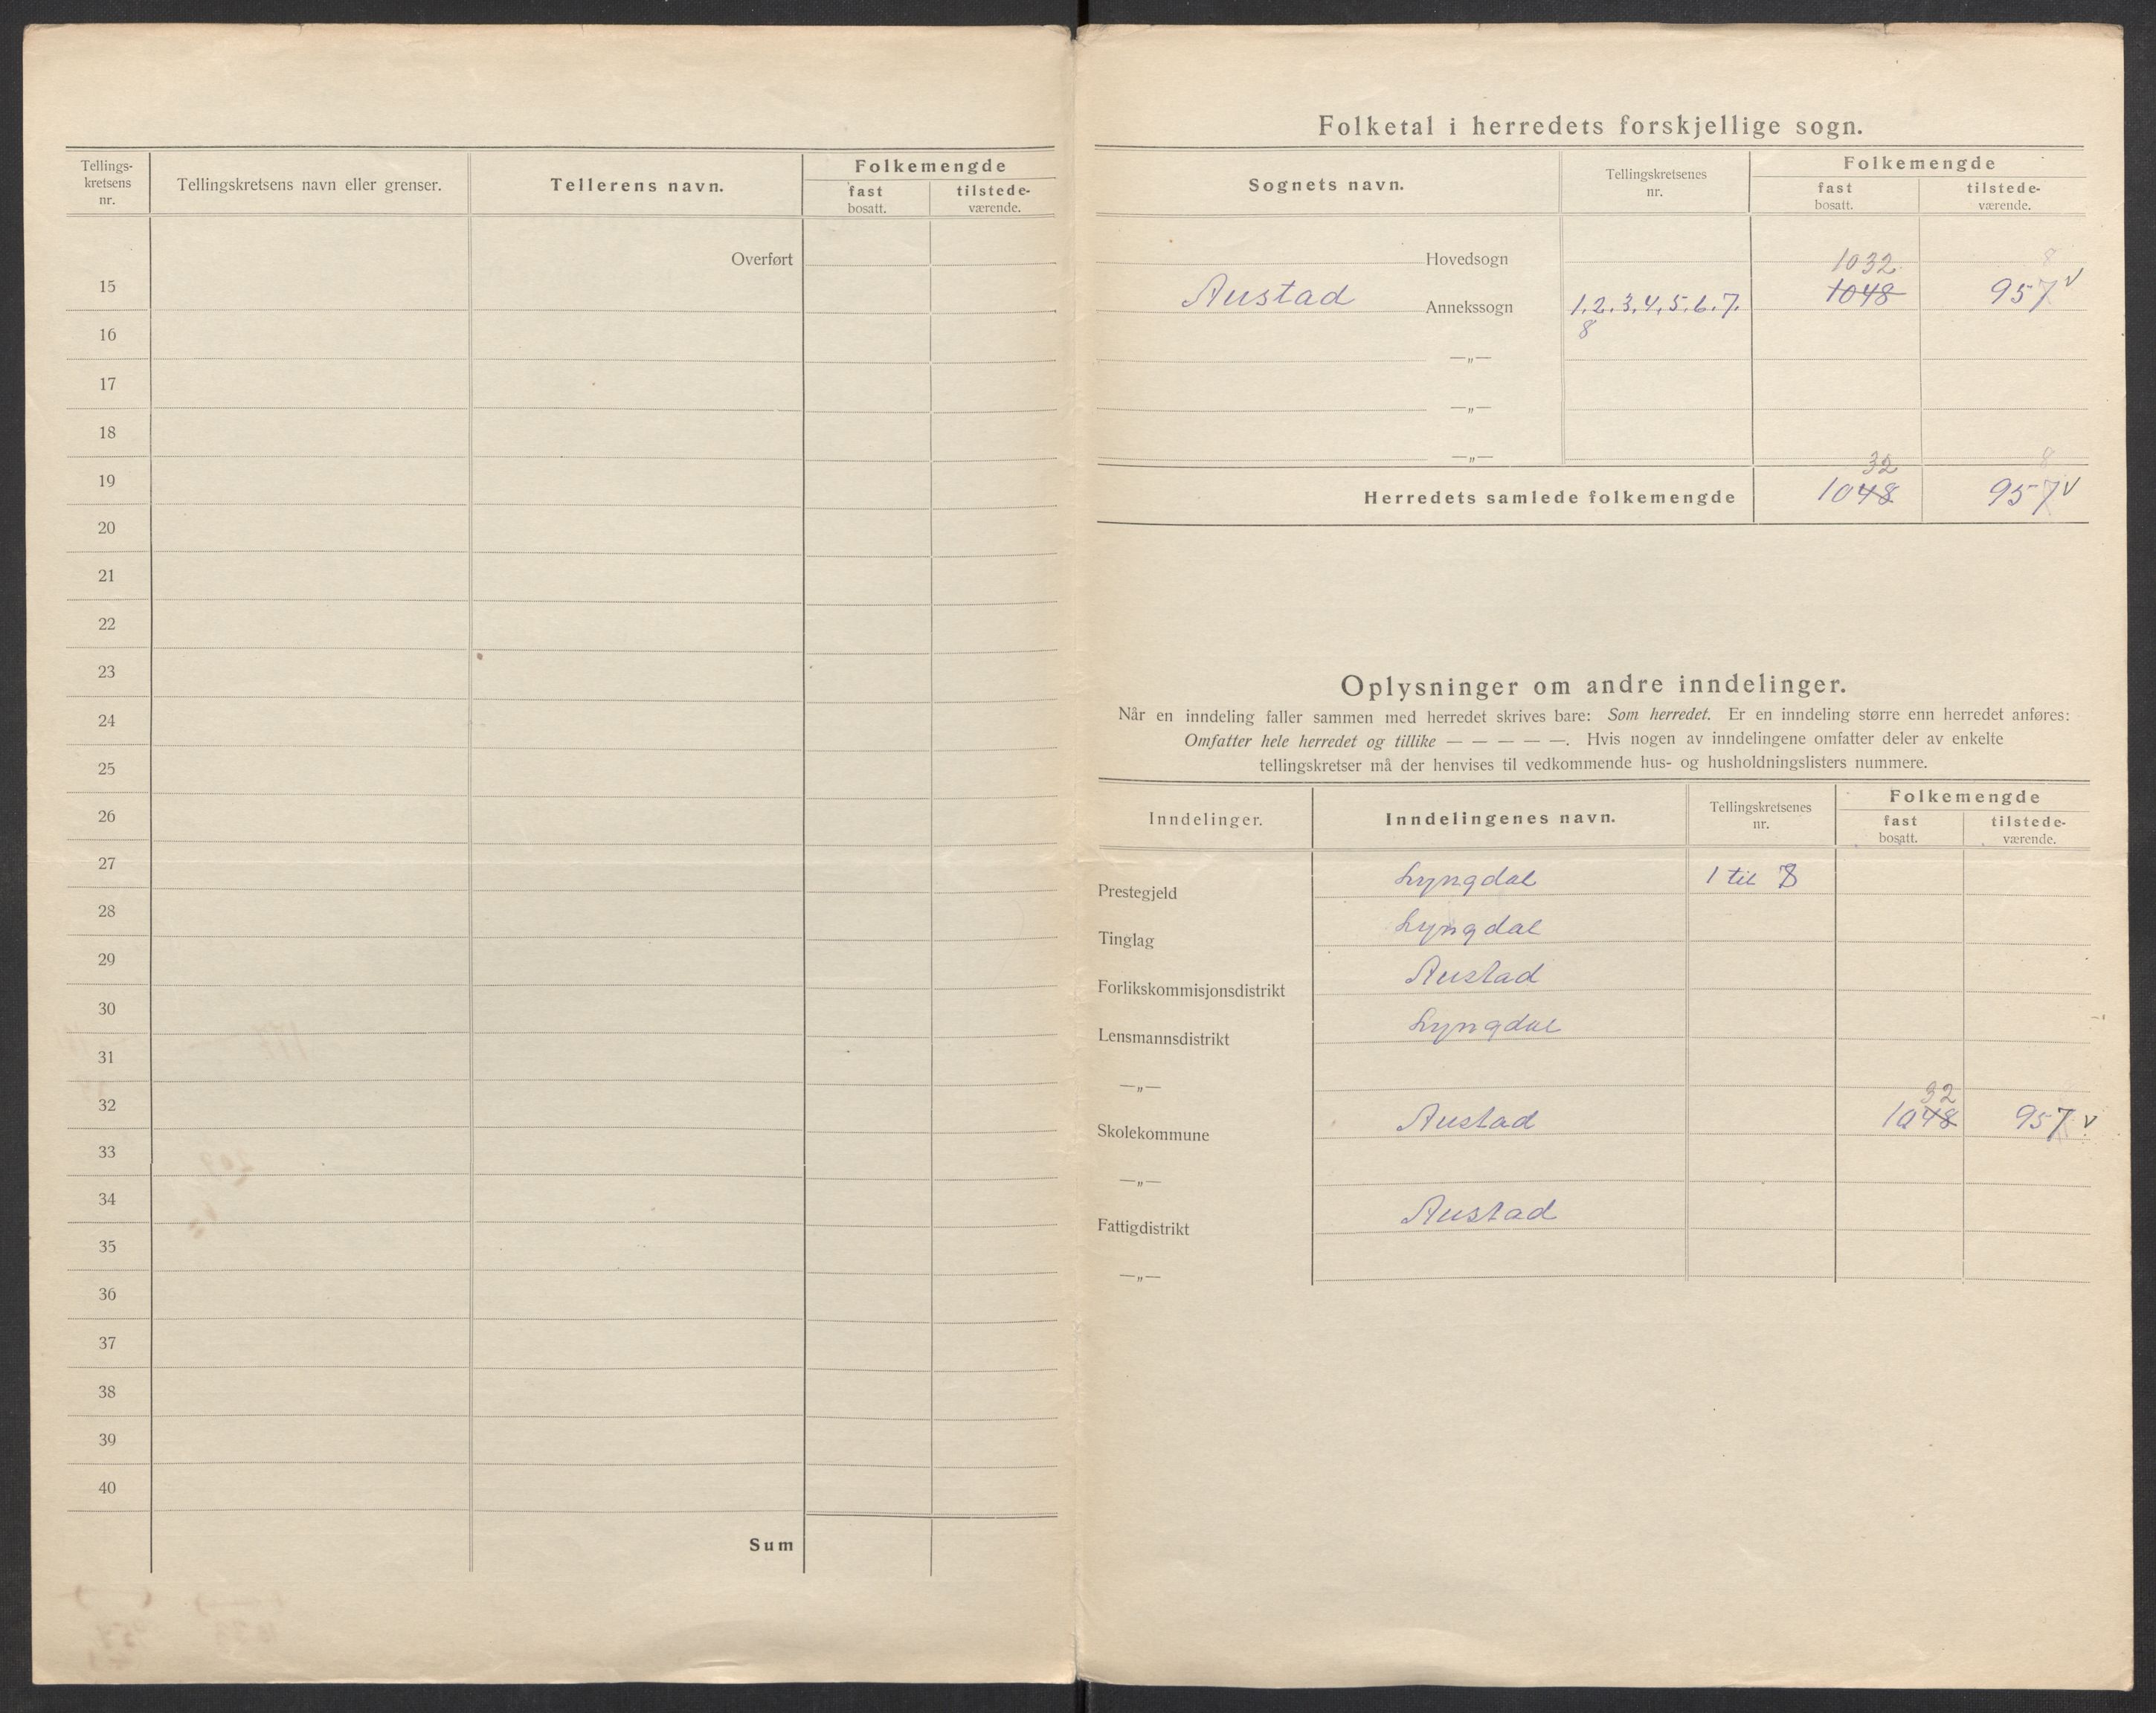 Tellings-
kretsens
nr.
Tellingskretsens navn eller grenser.
Tellerens navn.
Folkemengde
fast
bosatt.
tilstede-
værende.
Overført
15
16
17
18
19
20
21
22
23
24
25
26
27
28
29
30
31
32
33
34
35
36
37
38
39
40
Sum
Folketal i herredets forskjellige sogn.
Sognets navn.
Tellingskretsenes
nr.
Folkemengde
fast
bosatt.
tilstede-
værende.
Hovedsogn
1032
8
Austad Annekssogn 1.2.3.4.5.6.7. 1048 957 v
8
—„—
—„—
—„—
32 8
Herredets samlede folkemengde 1048 957 v
Oplysninger om andre inndelinger.
Når en inndeling faller sammen med herredet skrives bare: Som herredet. Er en inndeling større enn herredet anføres:
Omfatter hele herredet og tillike — — — — —. Hvis nogen av inndelingene omfatter deler av enkelte
tellingskretser må der henvises til vedkommende hus- og husholdningslisters nummere.
Inndelinger.
Inndelingenes navn.
Tellingskretsenes
nr.
Folkemengde
fast
bosatt.
tilstede-
værende.
Prestegjeld Lyngdal 1 til 8
Tinglag Lyngdal
Forlikskommisjonsdistrikt Austad
Lensmannsdistrikt Lyngdal
—„—
32
Skolekommune Austad 1048 957 v
—„—
Fattigdistrikt Austad
—„—